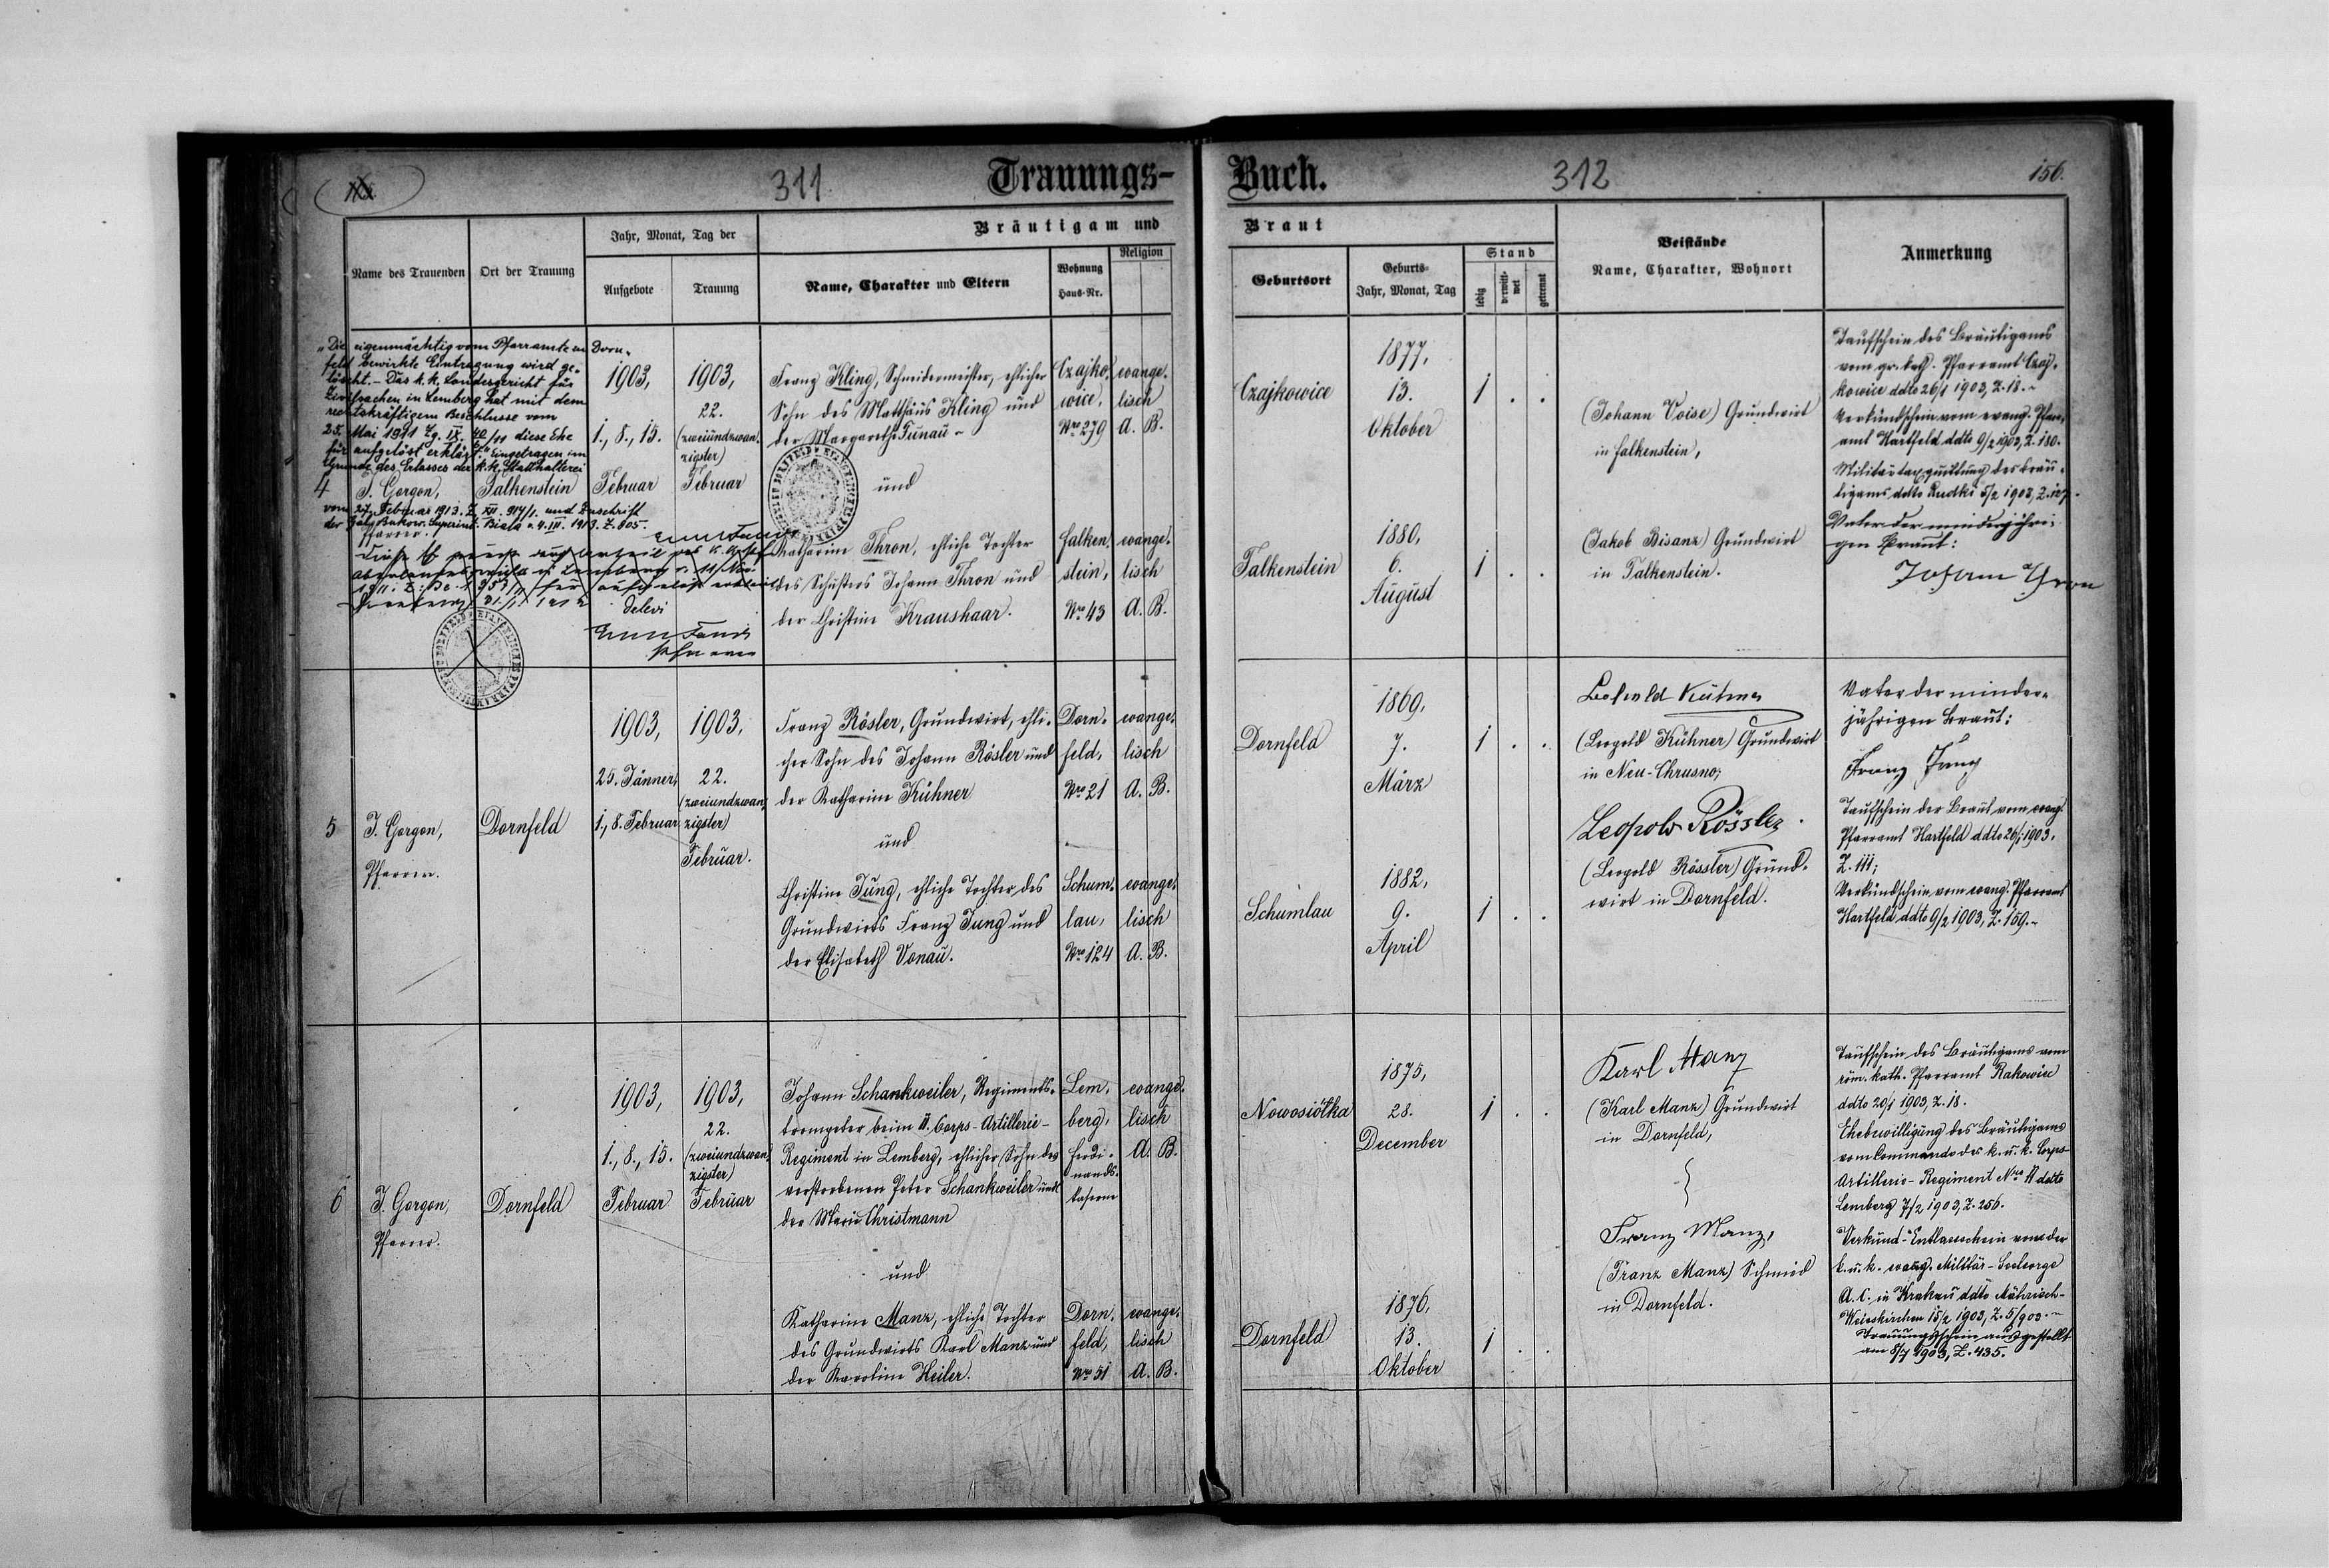 311
Trauungs-
Buch.
312
156.
Name des Trauenden
Ort der Trauung
Jahr, Monat, Tag der
Aufgebote
Trauung
Bräutigam und
Name, Charakter und Eltern
Wohnung
Haus-Nr.
Religion
Braut
Geburtsort
Geburts-
Jahr, Monat, Tag
Stand
ledig
verwitt-
wet
getrennt
Beistände
Name, Charakter, Wohnort
Anmerkung
"Die eigenmächtig vom Pfarramte in Dorn-
feld bewirkte Eintragung wird ge-
löscht. - Das k. k. Landesgericht für
Zivilsachen in Lemberg hat mit dem
rechtskräftigem Beschlusse vom
25. Mai 1911 Zg. IX. 40/11 diese Ehe
für aufgelöst erklärt." Eingetragen im
Grunde des Erlasses der k. k. Statthalterei
vom 27. Februar 1913. Z. XII. 914/1. und Zuschrift
der Galiz. Bukow. Superint. Biala v. 4. III. 1913. Z. 805.
4
J. Gorgon,
Pfarrer.
Falkenstein
1903,
1., 8., 15.
Februar
1903,
22.
(zweiundzwan-
zigster)
Februar
Franz Kling, Schneidermeister, ehlicher
Sohn des Matthäus Kling und
der Margarethe Tunau -
und
Katharina Thron, ehliche Tochter
des Schusters Johann Thron und
der Christine Kraushaar.
Czajko-
wice,
Nro 279
evange-
lisch
A. B.
Falken-
stein,
Nro 43
evange-
lisch
A. B.
delevi
Czajkowice
1877,
13.
Oktober
1 . .
Falkenstein
1880,
6.
August
1 . .
(Johann Voise) Grundwirt
in Falkenstein,
(Jakob Bisanz) Grundwirt
in Falkenstein.
Taufschein des Bräutigams
vom gr. kath. Pfarramt Czaj-
kowice ddto 26/1 1903, Z. 18. -
Verkündschein vom evang. Pfarr-
amt Hartfeld ddto 9/2 1903, Z. 180.
Militärtaxquittung des Bräu-
tigams ddto Rudki 5/2 1903, Z. 127.
Vater der minderjähri-
gen Braut:
Johann Thron
5
J. Gorgon,
Pfarrer.
Dornfeld
1903,
25. Jänner,
1., 8. Februar
1903,
22.
(zweiundzwan-
zigster)
Februar.
Franz Rösler, Grundwirt, ehli-
cher Sohn des Johann Rösler und
der Katharine Kühner
und
Christine Jung, ehliche Tochter des
Grundwirts Franz Jung und
der Elisabeth Vonau.
Dorn-
feld,
Nro 21
evange-
lisch
A. B.
Schum-
lau,
Nro 124
evange-
lisch
A. B.
Dornfeld
1869,
7.
März
1 . .
Schumlau
1882,
9.
April
1 . .
(Leopold Kühner) Grundwirt
in Neu-Chrusno;
Leopold Rössler
(Leopold Rössler) Grund-
wirt in Dornfeld.
Vater der minder-
jährigen Braut:
Franz Jung
Taufschein der Braut vom evang.
Pfarramt Hartfeld ddto 26/1 1903,
Z. 111;
Verkündschein vom evang. Pfarramt
Hartfeld ddto 9/2 1903, Z. 159. -
6
J. Gorgon,
Pfarrer.
Dornfeld
1903,
1., 8., 15.
Februar
1903,
22.
(zweiundzwan-
zigster)
Februar
Johann Schankweiler, Regiments-
trompeter beim 11. Corps-Artillerie-
Regiment in Lemberg, ehlicher Sohn des
verstorbenen Peter Schankweiler und
der Marie Christmann
und
Katharine Manz, ehliche Tochter
des Grundwirts Karl Manz und
der Karoline Heiler.
Lem-
berg,
Ferdi-
nands-
kaserne
evange-
lisch
A. B.
Dorn-
feld,
Nro 51
evange-
lisch
A. B.
Nowosiółka
1875,
28.
December
1 . .
Dornfeld
1876,
13.
Oktober
1 . .
Karl Manz
(Karl Manz) Grundwirt
in Dornfeld,
Franz Manz,
(Franz Manz) Schmied
in Dornfeld.
Taufschein des Bräutigams vom
röm. kath. Pfarramt Rakowice
ddto 20/1 1903, Z. 18.
Ehebewilligung des Bräutigams
vom Commando des k. u. k. Corps-
Artillerie-Regiment Nro 11 ddto
Lemberg 7/2 1903, Z. 256.
Verkünd-Entlassschein von der
k. u. k. evang. Militär-Seelsorge
A. C. in Krakau ddto Mährisch-
Weisskirchen 15/2 1903, Z. 5/903. -
Trauungsschein ausgestellt
am 8/7 1903, Z. 435.